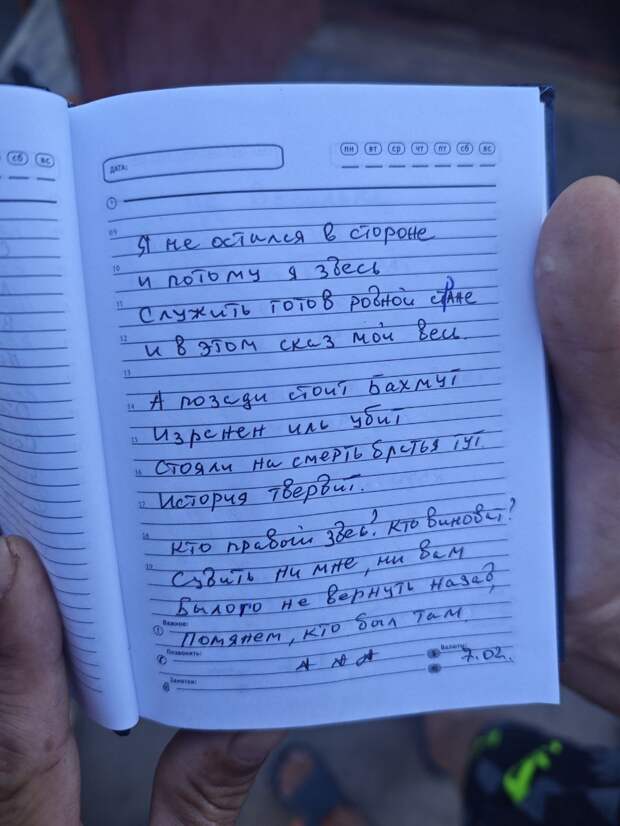 сб вс
ДАТА:
пн вт ср чт пт сб вс
09
Я не остался в стороне
10
и потому я здесь
11
Служить готов родной стРАне
12
и в этом сказ мой весь.
13
14
А позади стоит Бахмут
15
Изранен иль убит
16
Стояли на смерть братья тут.
17
История твердит.
18
Кто правый здесь? Кто виноват?
19
Судить ни мне, ни вам
Былого не вернуть назад,
Важное:
Помянем, кто был там.
Позвонить:
Валюты:
7.02.
Заметки: